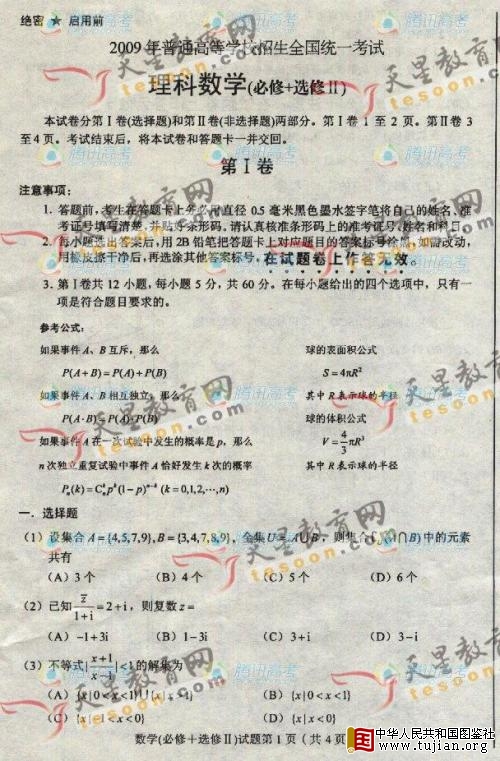 绝密 ★ 启用前
2009 年普通高等学校招生全国统一考试
理科数学(必修+选修Ⅱ)
本试卷分第Ⅰ卷(选择题)和第Ⅱ卷(非选择题)两部分。第Ⅰ卷 1 至 2 页。第Ⅱ卷 3
至 4 页。考试结束后，将本试卷和答题卡一并交回。
第Ⅰ卷
注意事项：
1. 答题前，考生在答题卡上务必用直径 0.5 毫米黑色墨水签字笔将自己的姓名、准
考证号填写清楚，并贴好条形码。请认真核准条形码上的准考证号、姓名和科目。
2. 每小题选出答案后，用 2B 铅笔把答题卡上对应题目的答案标号涂黑，如需改动，
用橡皮擦干净后，再选涂其他答案标号，在试题卷上作答无效。
3. 第Ⅰ卷共 12 小题，每小题 5 分，共 60 分。在每小题给出的四个选项中，只有一
项是符合题目要求的。
参考公式：
如果事件 A、B 互斥，那么 球的表面积公式
P(A+B)=P(A)+P(B) S=4πR²
如果事件 A、B 相互独立，那么 其中 R 表示球的半径
P(A·B)=P(A)·P(B) 球的体积公式
如果事件 A 在一次试验中发生的概率是 p，那么 V=4/3πR³
n 次独立重复试验中事件 A 恰好发生 k 次的概率 其中 R 表示球的半径
Pₙ(k)=Cₙᵏpᵏ(1−p)ⁿ⁻ᵏ (k=0,1,2,⋯,n)
一．选择题
(1) 设集合 A={4,5,7,9}, B={3,4,7,8,9}，全集 U=A∪B，则集合∁U(A∩B)中的元素
共有
(A) 3 个 (B) 4 个 (C) 5 个 (D) 6 个
(2) 已知 z̄/(1+i)=2+i，则复数 z=
(A) -1+3i (B) 1-3i (C) 3+i (D) 3-i
(3) 不等式|(x+1)/(x-1)|<1的解集为
(A) {x|0<x<1}∪{x|x>1} (B) {x|0<x<1}
(C) {x|-1<x<0} (D) {x|x<0}
数学(必修＋选修Ⅱ)试题第 1 页（共 4 页）
天星教育网
tesoon.com
腾讯高考
中华人民共和国图鉴社
www.tujian.org